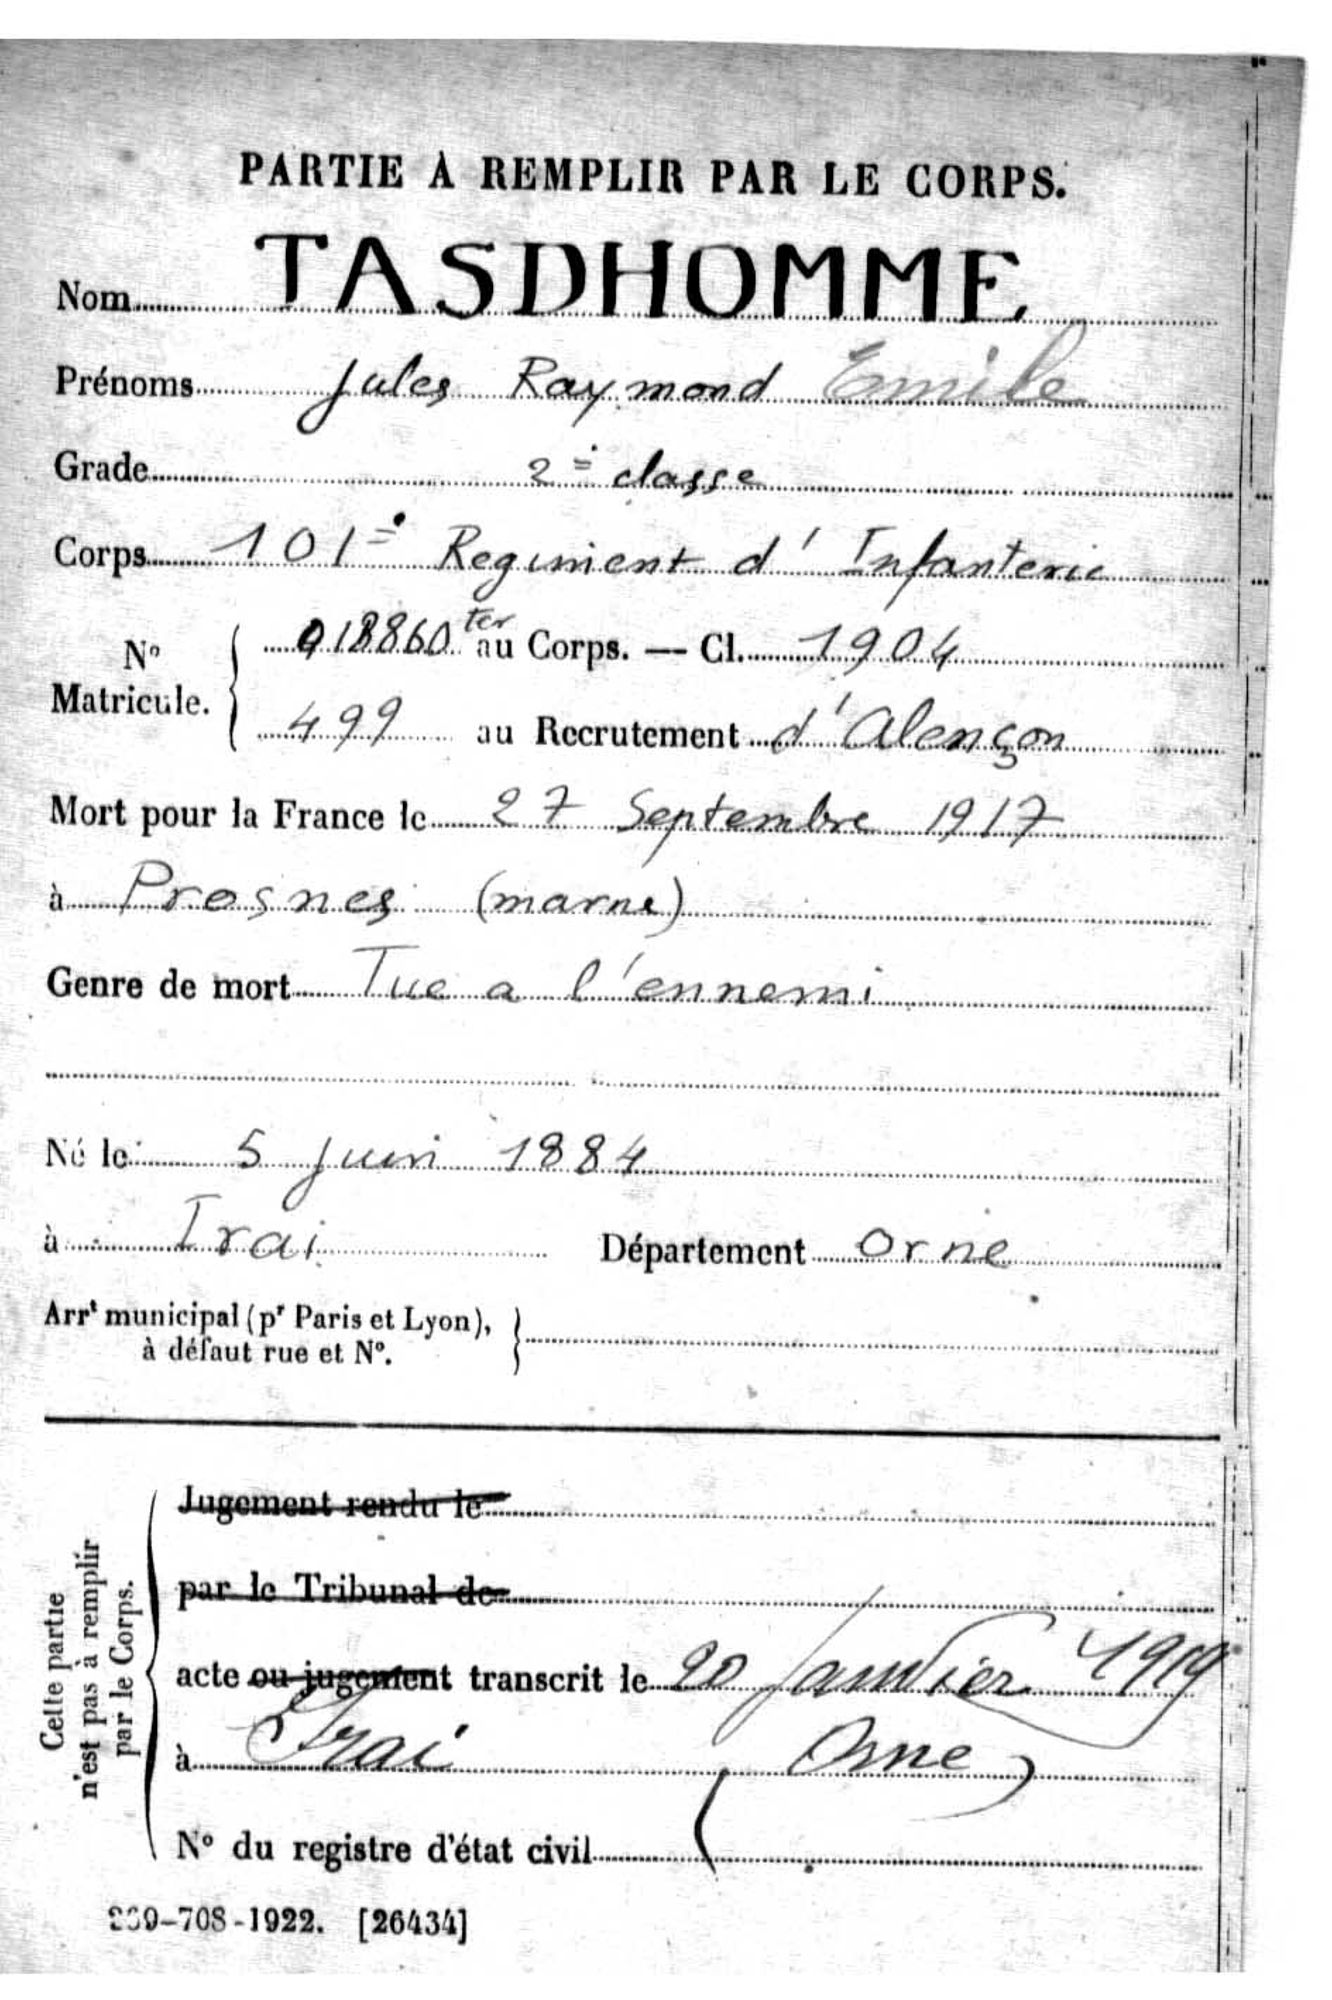 PARTIE À REMPLIR PAR LE CORPS.
Nom TASDHOMME
Prénoms Jules Raymond Emile
Grade 2e classe
Corps 101e Regiment d'Infanterie
No Matricule. 018860 ter au Corps. — Cl. 1904
499 au Recrutement d'Alençon
Mort pour la France le 27 Septembre 1917
à Prosnes (marne)
Genre de mort Tue a l'ennemi
Né le 5 Juin 1884
à Irai Département Orne
Arrt municipal (pr Paris et Lyon),
à défaut rue et No.
Cette partie
n'est pas à remplir
par le Corps.
Jugement rendu le
par le Tribunal de
acte ou jugement transcrit le 20 Janvier 1919
à Irai (Orne)
No du registre d'état civil
-708-1922. [26434]